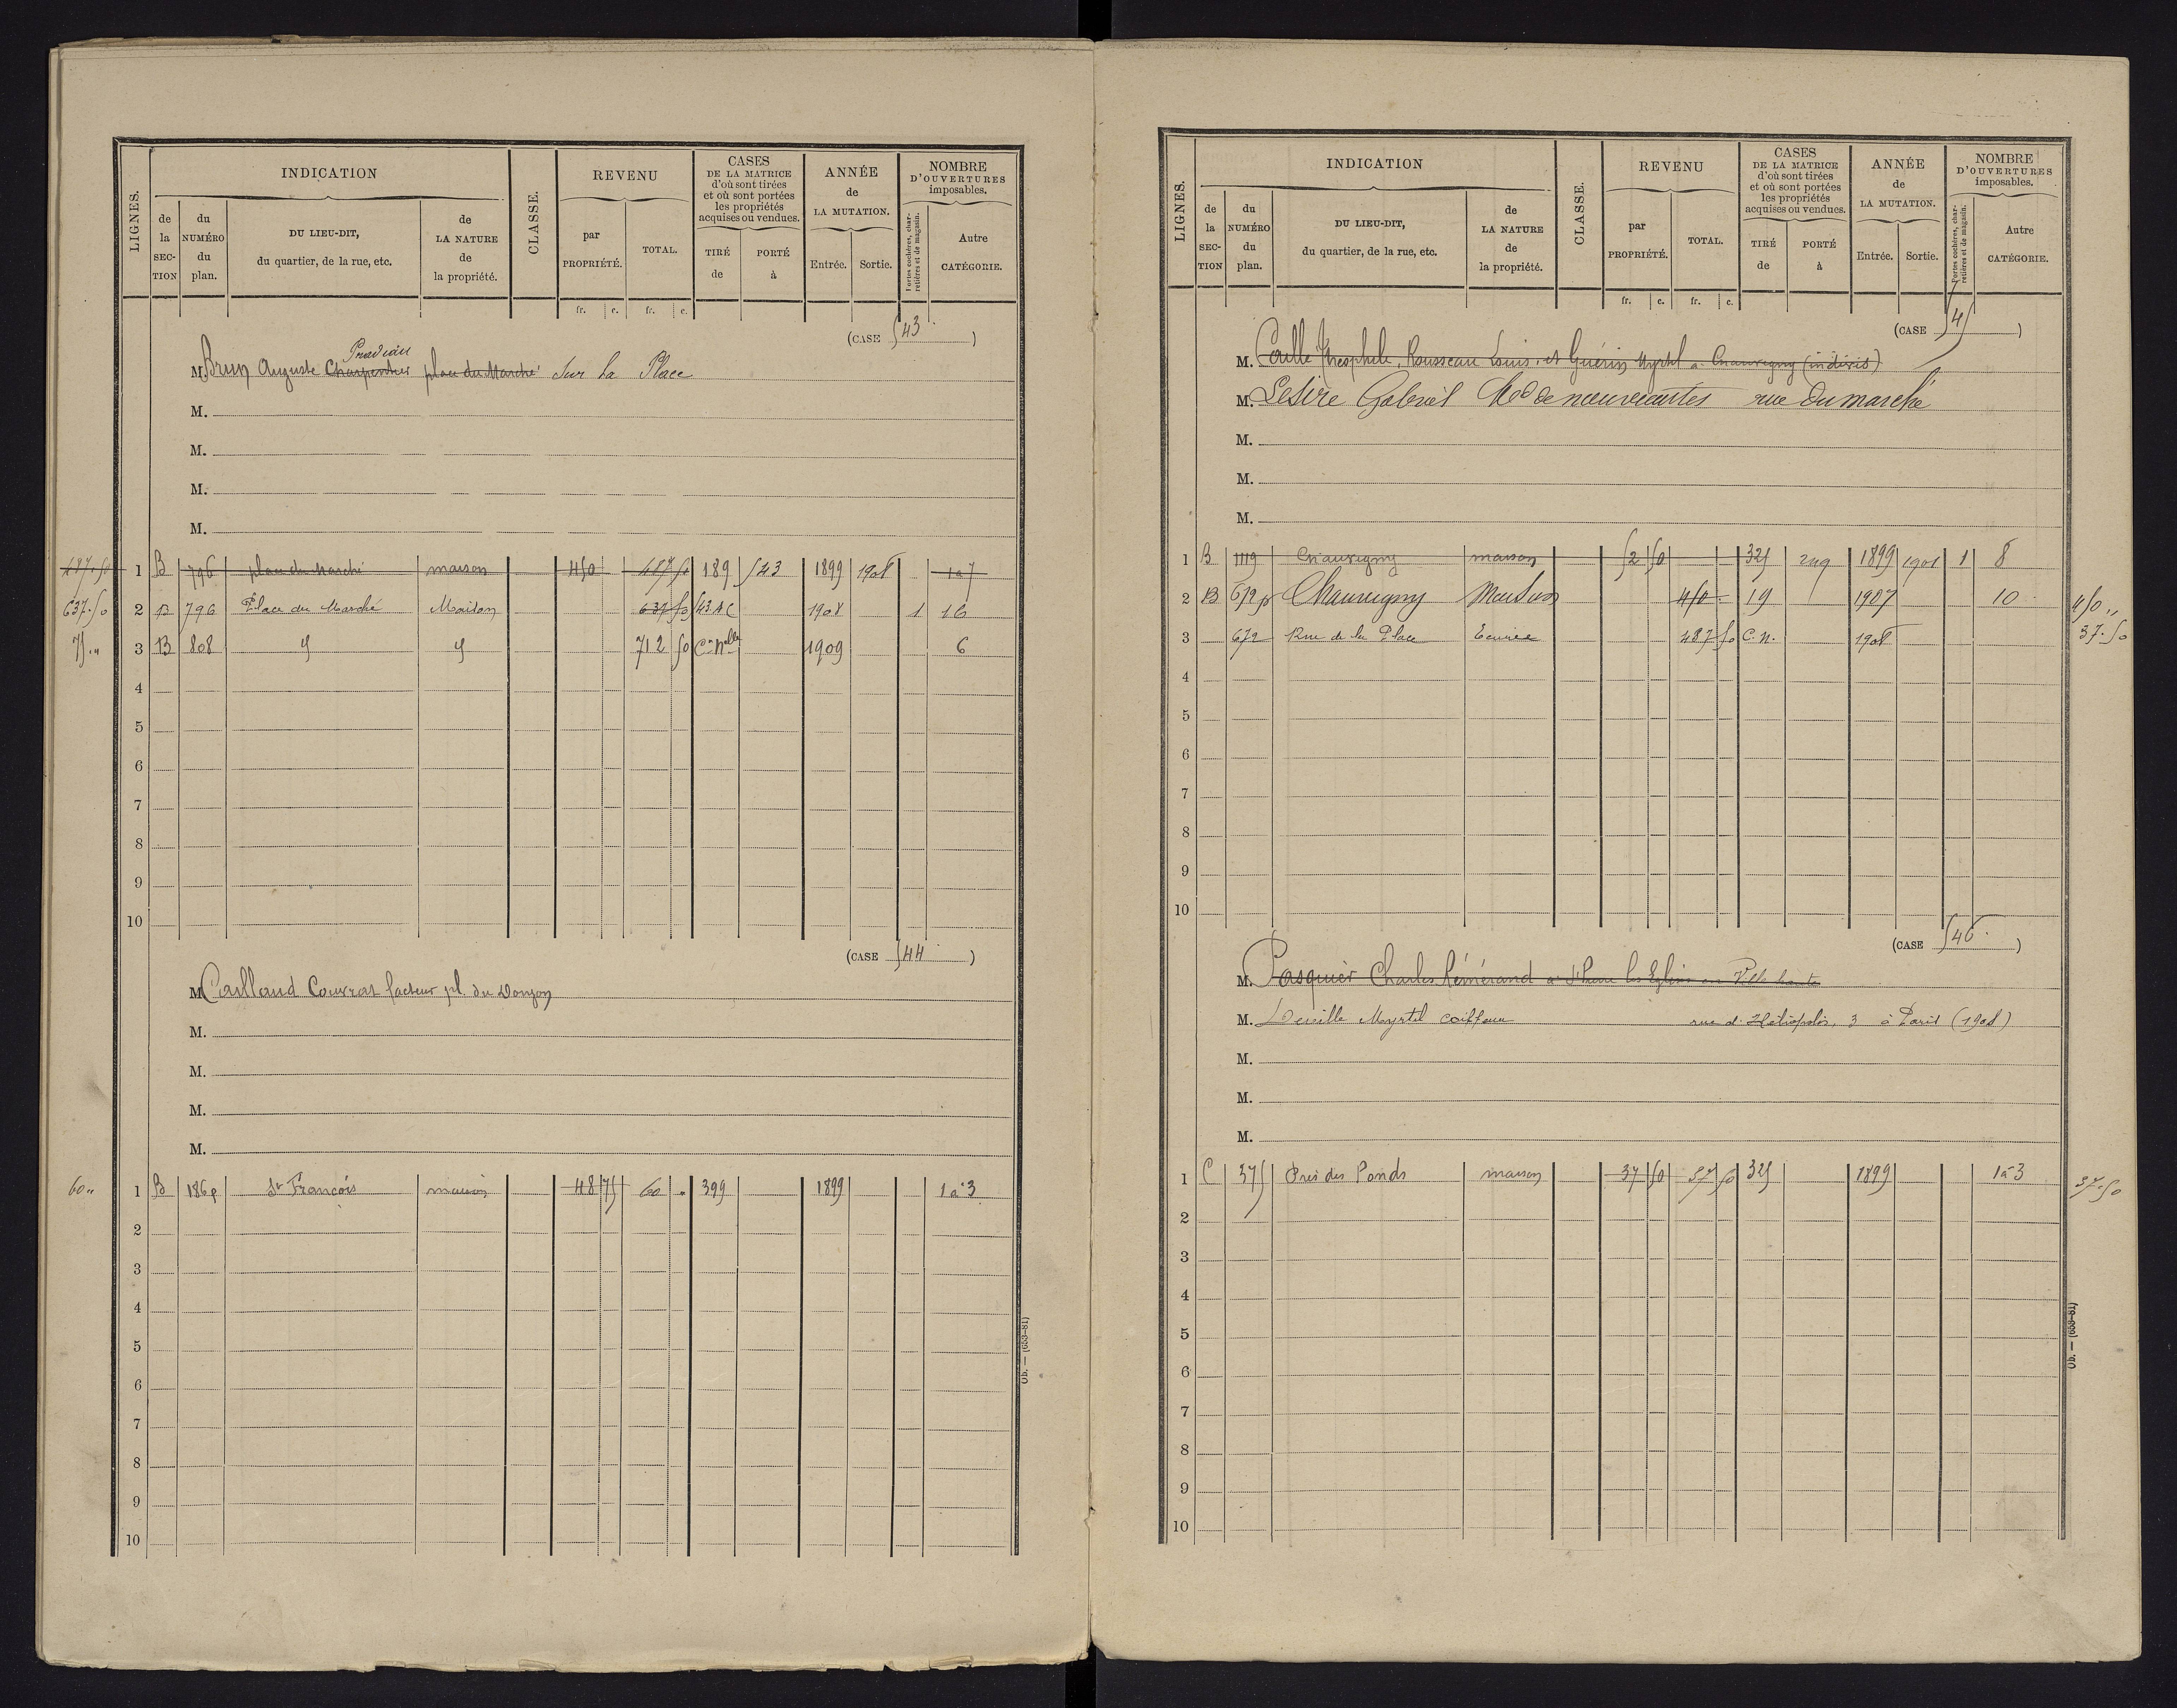 LIGNES.
INDICATION
CLASSE.
REVENU
CASES
DE LA MATRICE
d'où sont tirées
et où sont portées
les propriétés
acquises ou vendues.
ANNÉE
de
LA MUTATION.
NOMBRE
D'OUVERTURES
imposables.
de la SEC-TION
du NUMÉRO du plan.
DU LIEU-DIT,
du quartier, de la rue, etc.
de LA NATURE de la propriété.
par PROPRIÉTÉ.
TOTAL.
TIRÉ de
PORTÉ à
Entrée.
Sortie.
Portes cochères, charretières et de magasin.
Autre CATÉGORIE.
fr. c. fr. c.
(CASE 543 )
Pradeau
M. Brun Auguste Charpentier place du Marché Sur la Place
M.
M.
M.
M.
487.50 1 B 796 place du Marché maison 450 487 50 189 543 1899 1908 1 à 7
637.50 2 B 796 Place du Marché Maison 637 50 543 AC 1908 1 16
75.. 3 B 808 712 50 1909 6
4
5
6
7
8
9
10
(CASE 544 )
M. Caillaud Couvrat facteur pl. du Donjon
M.
M.
M.
M.
60.. 1 B 186p St François maison 48 75 60 399 1899 1 à 3
2
3
4
5
6
7
8
9
10
Ob. — (653-81)
LIGNES.
INDICATION
CLASSE.
REVENU
CASES
DE LA MATRICE
d'où sont tirées
et où sont portées
les propriétés
acquises ou vendues.
ANNÉE
de
LA MUTATION.
NOMBRE
D'OUVERTURES
imposables.
de la SEC-TION
du NUMÉRO du plan.
DU LIEU-DIT,
du quartier, de la rue, etc.
de LA NATURE de la propriété.
par PROPRIÉTÉ.
TOTAL.
TIRÉ de
PORTÉ à
Entrée.
Sortie.
Portes cochères, charretières et de magasin.
Autre CATÉGORIE.
fr. c. fr. c.
(CASE 545 )
M. Théophile, Rousseau Louis, et Guérin Myrtil à Chauvigny (indivis)
M. Lesire Gabriel Md de nouveautés rue du marché
M.
M.
M.
1 B 1119 Chauvigny maison 52 50 325 1899 1901 1 8
2 B 672p Chauvigny Maison 450 19 1907 10 450 ,,
3 672 Rue de la Place Ecurie 487 50 C.N. 1908 37.50
4
5
6
7
8
9
10
(CASE 546 )
M. Pasquier Charles Rémérand
M. Myrtil coiffeur rue d'Héliopolis, 3 à Paris (1908)
M.
M.
M.
1 C 375 Prés des Ponds maison 37 50 37 50 325 1899 1 à 3 37.50
2
3
4
5
6
7
8
9
10
Ob. — (653-81)